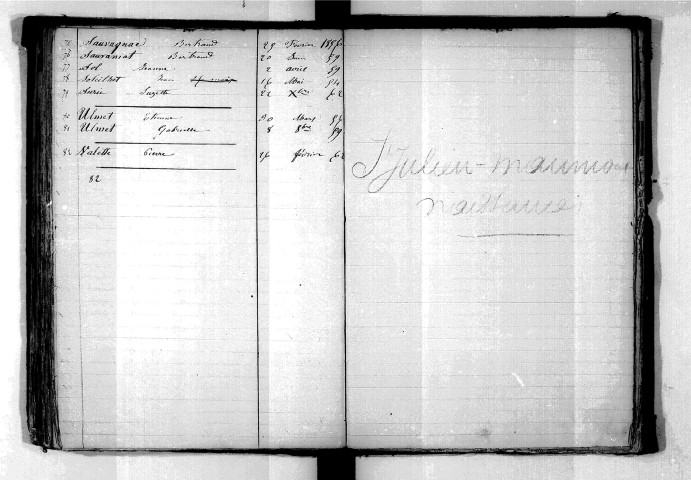 75 Sauvagnac Bertrand 29 Février 1856
76 Sauvaniat Bertrand 20 Juin 59
77 Sol Jeanne 2 avril 59
78 Soleilhet Jean 16 Mai 54
79 Surie Suzette 22 Xbre 62
80 Ulmet Etienne 30 Mars 56
81 Ulmet Gabrielle 8 8bre 59
82 Valette Pierre 26 février 62
82
St Julien-maumont
naissances